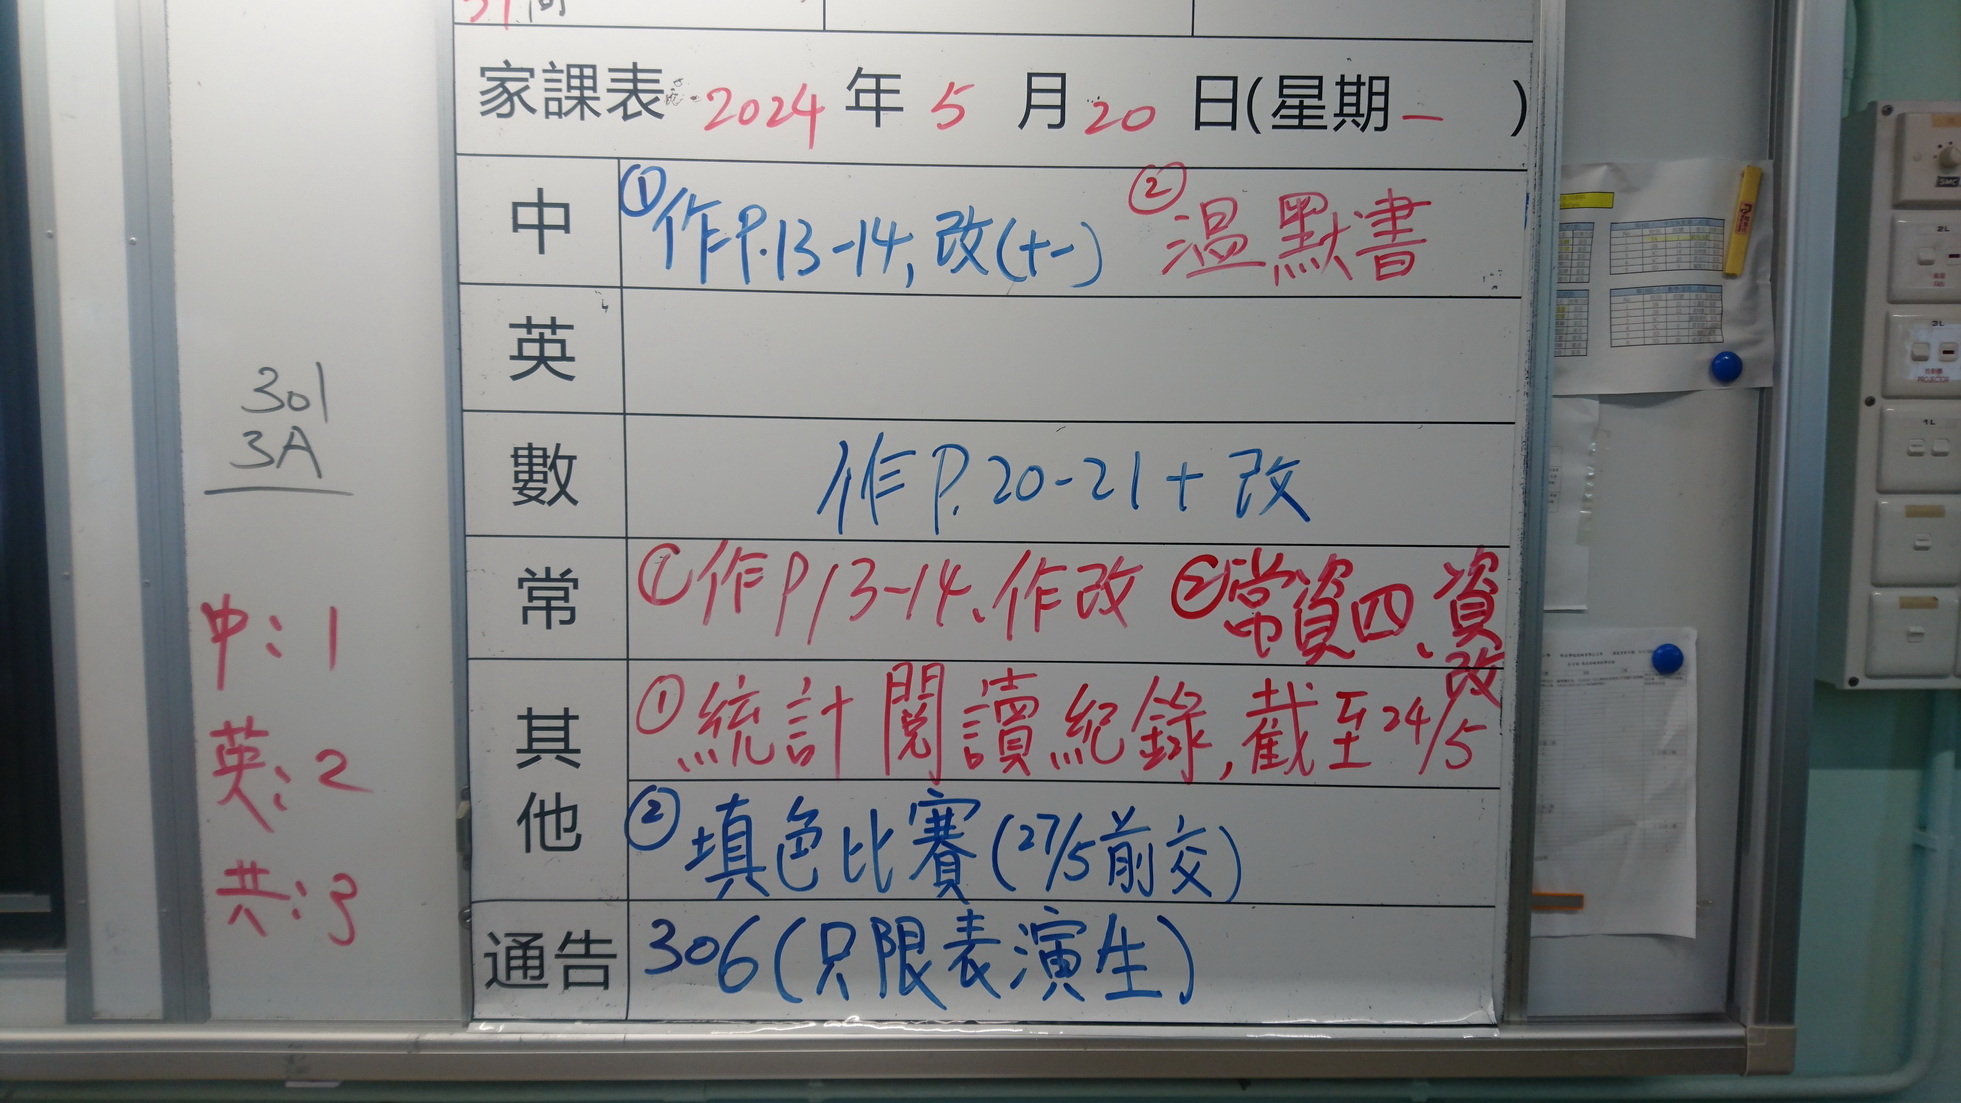 家課表 2024 年 5 月 20 日(星期一 )
中 ①作P.13-14, 改(十一) ②溫默書
英
數 作P.20-21+改
常 ①作P13-14、作改 ②常資四、資改
其他 ①統計閱讀紀錄,截至24/5
②填色比賽(27/5前交)
通告 306(只限表演生)
301
3A
中:1
英:2
共:3